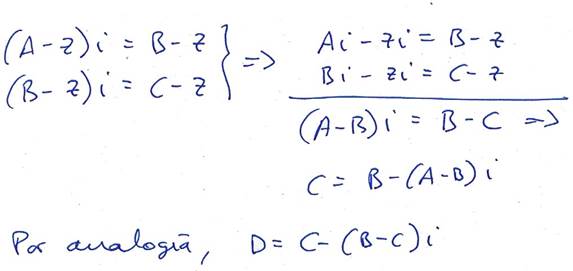 (A-z)i = B-z } => Ai - zi = B-z
(B-z)i = C-z } Bi - zi = C-z
(A-B)i = B-C =>
C = B-(A-B)i
Por analogía, D = C-(B-C)i